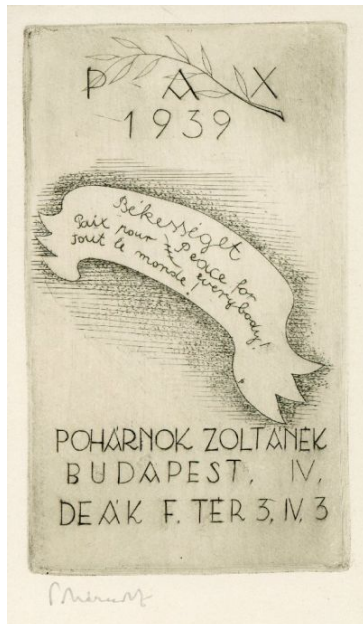 PAX
1939
Békességet
Paix pour Peace for
tout le monde everybody!
POHÁRNOK ZOLTÁNÉK
BUDAPEST, IV,
DEÁK F. TÉR 3, IV. 3